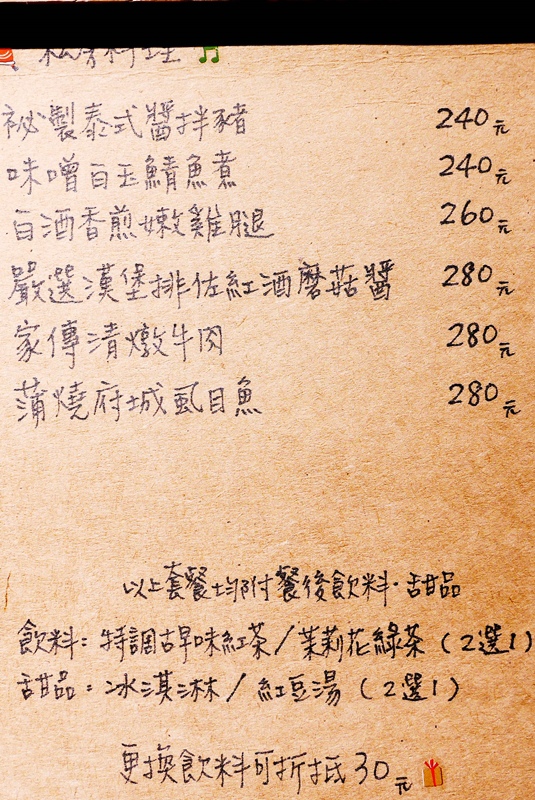 私房料理
祕製泰式醬拌豬 240元
味噌白玉鯖魚煮 240元
白酒香煎嫩雞腿 260元
嚴選漢堡排佐紅酒磨菇醬 280元
家傳清燉牛肉 280元
蒲燒府城虱目魚 280元
以上套餐均附餐後飲料·甜品
飲料：特調古早味紅茶/茉莉花綠茶（2選1）
甜品：冰淇淋/紅豆湯（2選1）
更換飲料可折抵30元